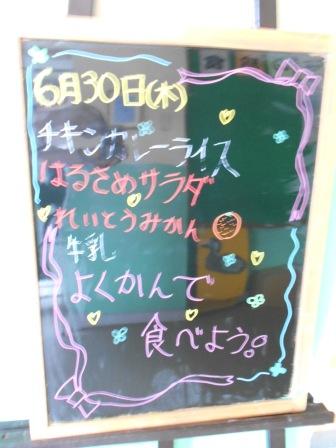 6月30日(木)
チキンカレーライス
はるさめサラダ
れいとうみかん
牛乳
よくかんで
食べよう。